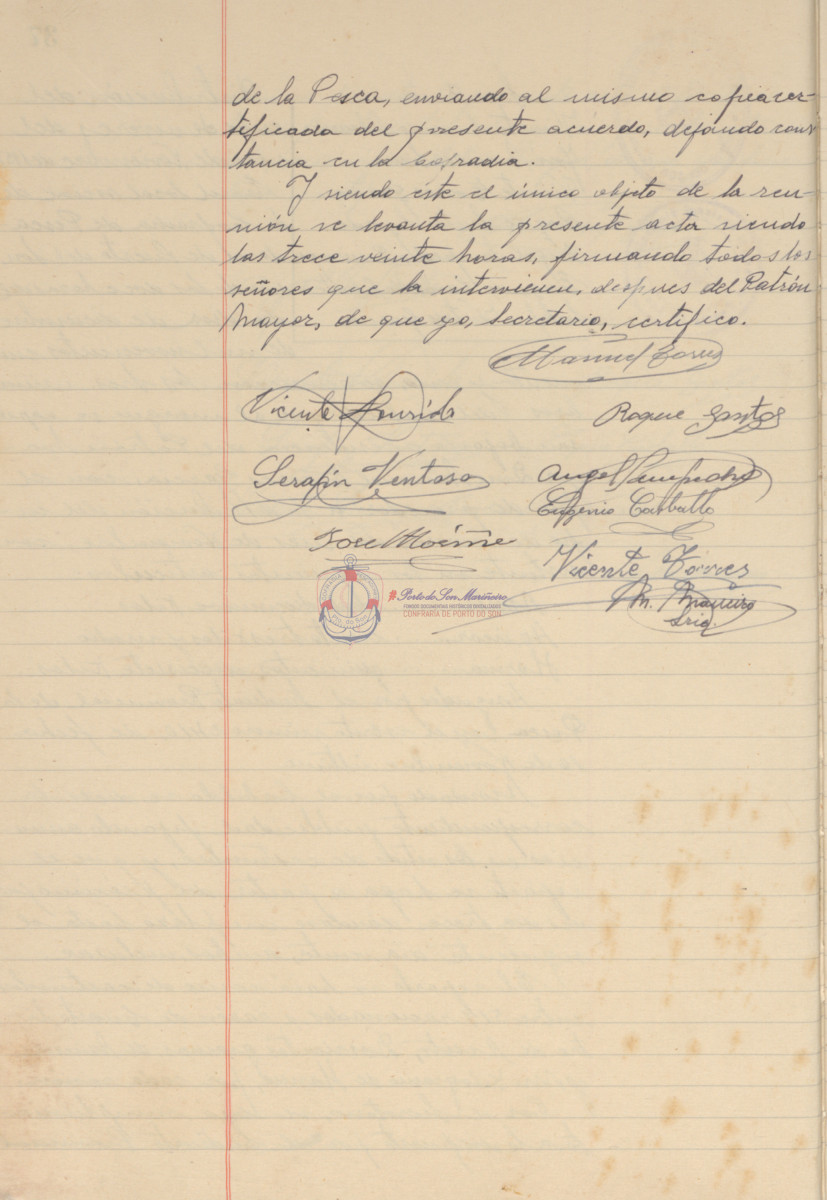 de la Pesca, enviando al mismo copia cer-
tificada del presente acuerdo, dejando cons
tancia en la Cofradia.
Y siendo éste el único objeto de la reu-
nión se levanta la presente acta siendo
las trece veinte horas, firmando todos los
señores que la intervienen, despues del Patrón
Mayor, de que yo, Secretario, certifico.
Manuel Torres
Vicente
Roque Santos
Serafin Ventoso
Angel Sampedro
Eugenio Carballo
Jose
Vicente Torres
M. Maneiro
Srio.
#Porto do Son Mariñeiro
FONDOS DOCUMENTAIS HISTÓRICOS DIXITALIZADOS
CONFRARÍA DE PORTO DO SON